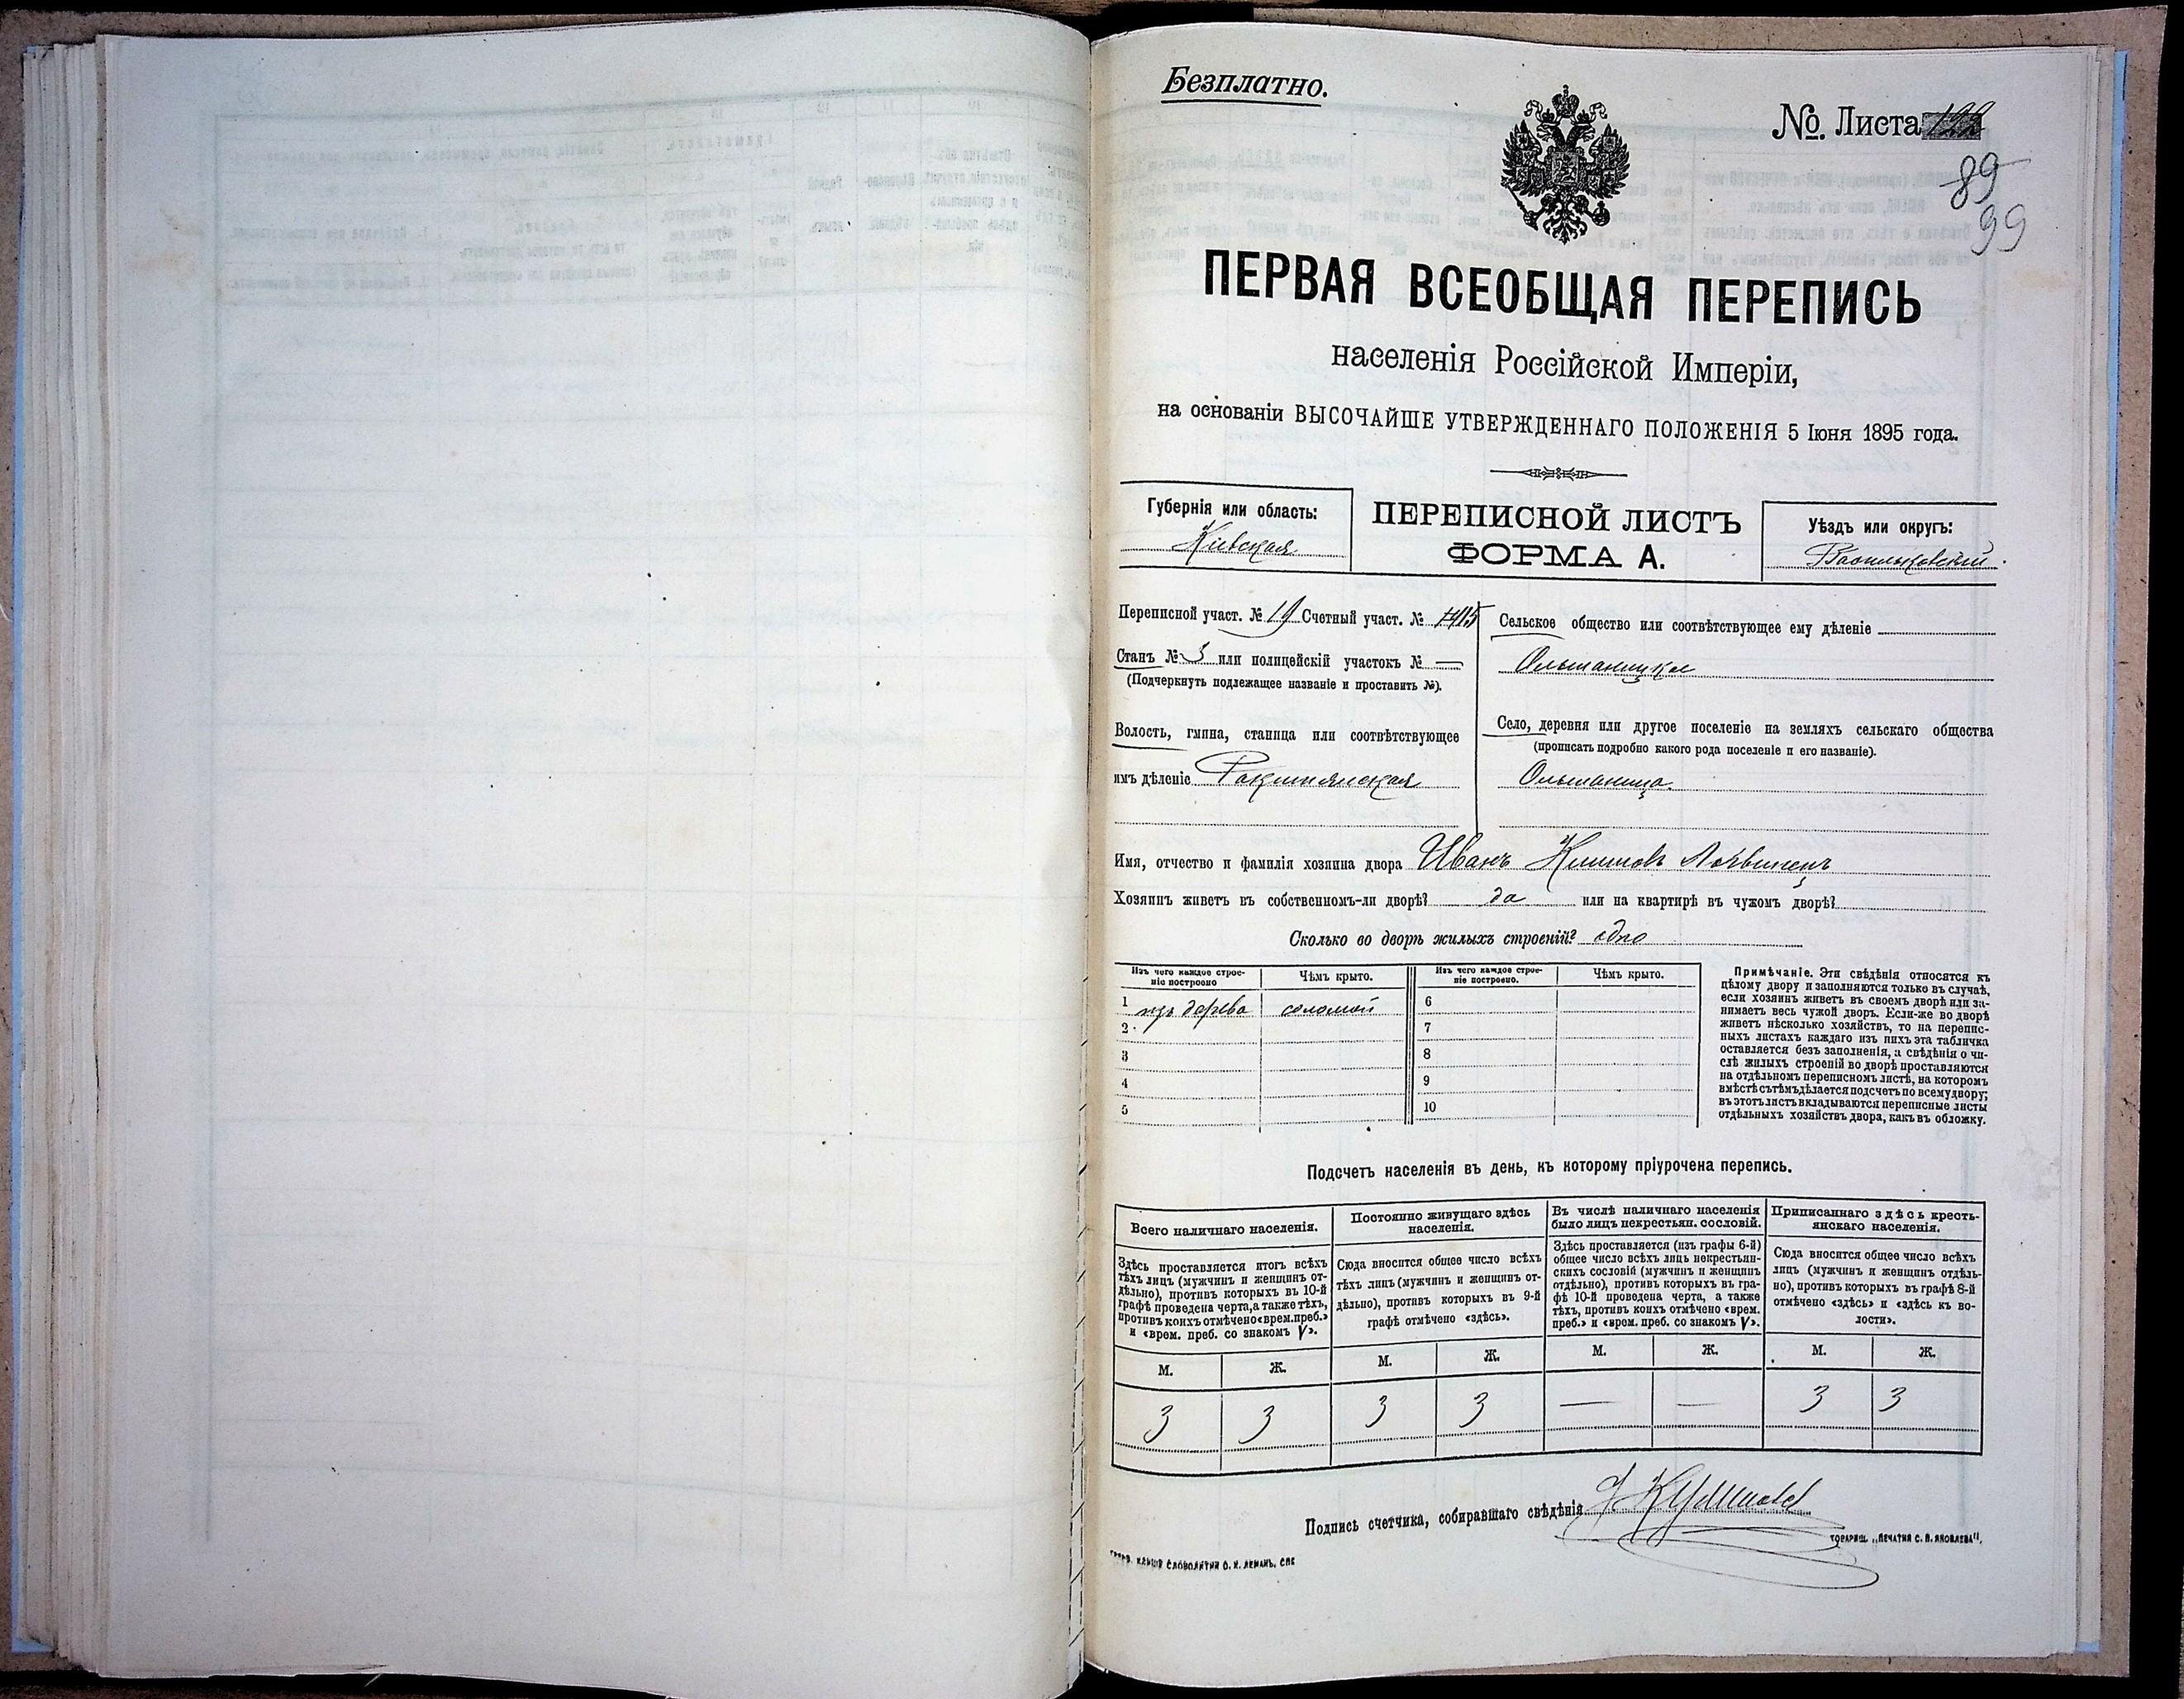 Безплатно.
№. Листа
89
99
ПЕРВАЯ ВСЕОБЩАЯ ПЕРЕПИСЬ
населенія Россійской Имперіи,
на основаніи ВЫСОЧАЙШЕ УТВЕРЖДЕННАГО ПОЛОЖЕНІЯ 5 Іюня 1895 года.
Губернія или область:
Кіевская
ПЕРЕПИСНОЙ ЛИСТЪ
ФОРМА А.
Уѣздъ или округъ:
Васильковскій.
Переписной участ. № 19 Счетный участ. №
Станъ № 3 или полицейскій участокъ № —
(Подчеркнуть подлежащее названіе и проставить №).
Волость, гмина, станица или соотвѣтствующее
имъ дѣленіе Ракитянская
Сельское общество или соотвѣтствующее ему дѣленіе
Ольшаницкое
Село, деревня или другое поселеніе на земляхъ сельскаго общества
(прописать подробно какого рода поселеніе и его названіе).
Ольшаница.
Имя, отчество и фамилія хозяина двора Иванъ Климовъ
Хозяинъ живетъ въ собственномъ-ли дворѣ? да или на квартирѣ въ чужомъ дворѣ?
Сколько во дворѣ жилыхъ строеній? одно
Изъ чего каждое строе-
ніе построено
Чѣмъ крыто.
Изъ чего каждое строе-
ніе построено.
Чѣмъ крыто.
1 изъ дерева соломой 6
2 7
3 8
4 9
5 10
Примѣчаніе. Эти свѣдѣнія относятся къ
цѣлому двору и заполняются только въ случаѣ,
если хозяинъ живетъ въ своемъ дворѣ или за-
нимаетъ весь чужой дворъ. Если-же во дворѣ
живетъ нѣсколько хозяйствъ, то на перепис-
ныхъ листахъ каждаго изъ нихъ эта табличка
оставляется безъ заполненія, а свѣдѣнія о чи-
слѣ жилыхъ строеній во дворѣ проставляются
на отдѣльномъ переписномъ листѣ, на которомъ
вмѣстѣ съ тѣмъ дѣлается подсчетъ по всему двору;
въ этотъ листъ вкладываются переписные листы
отдѣльныхъ хозяйствъ двора, какъ въ обложку.
Подсчетъ населенія въ день, къ которому пріурочена перепись.
Всего наличнаго населенія.
Здѣсь проставляется итогъ всѣхъ
тѣхъ лицъ (мужчинъ и женщинъ от-
дѣльно), противъ которыхъ въ 10-й
графѣ проведена черта, а также тѣхъ,
противъ коихъ отмѣчено «врем. преб.»
и «врем. преб. со знакомъ V».
Постоянно живущаго здѣсь
населенія.
Сюда вносится общее число всѣхъ
тѣхъ лицъ (мужчинъ и женщинъ от-
дѣльно), противъ которыхъ въ 9-й
графѣ отмѣчено «здѣсь».
Въ числѣ наличнаго населенія
было лицъ некрестьян. сословій.
Здѣсь проставляется (изъ графы 6-й)
общее число всѣхъ лицъ некрестьян-
скихъ сословій (мужчинъ и женщинъ
отдѣльно), противъ которыхъ въ гра-
фѣ 10-й проведена черта, а также
тѣхъ, противъ коихъ отмѣчено «врем.
преб.» и «врем. преб. со знакомъ V».
Приписаннаго здѣсь кресть-
янскаго населенія.
Сюда вносится общее число всѣхъ
лицъ (мужчинъ и женщинъ отдѣль-
но), противъ которыхъ въ графѣ 8-й
отмѣчено «здѣсь» и «здѣсь къ во-
лости».
М. Ж. М. Ж. М. Ж. М. Ж.
3 3 3 3 — — 3 3
Подпись счетчика, собиравшаго свѣдѣнія
ТОВАРИЩ. „ПЕЧАТНЯ С. П. ЯКОВЛЕВА".
СЛОВОЛИТНИ О. И. ЛЕМАНЪ, СПБ